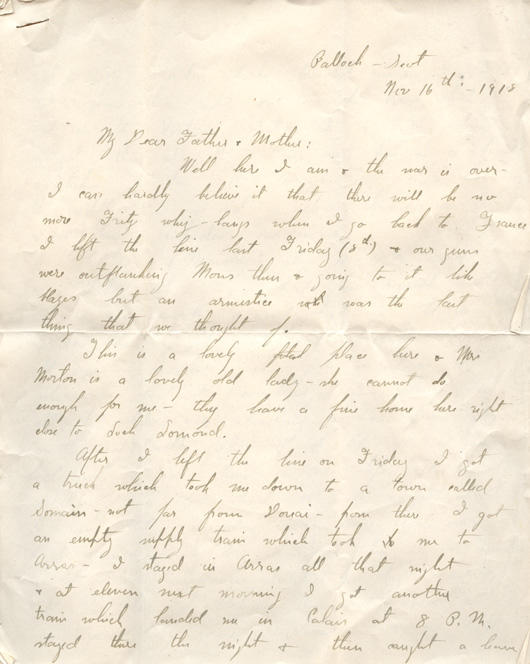 Balloch - Scot
Nov 16th - 1918
My Dear Father & Mother:
Well here I am & the war is over -
I can hardly believe it that there will be no
more Fritz whiz-bangs when I go back to France
I left the line last Friday (8th) & our guns
were outflanking Mons then & going to it like
blazes but an armistice was the last
thing that we thought of.
This is a lovely place here & Mrs
Morton is a lovely old lady - she cannot do
enough for me - they have a fine home here right
close to Loch Lomond.
After I left the line on Friday I got
a truck which took me down to a town called
Somain - not far from Douai - from there I got
an empty supply train which took me to
Arras - I stayed in Arras all that night
& at eleven next morning I got another
train which landed me in Calais at 8 P.M.
stayed there the night & then caught a leave